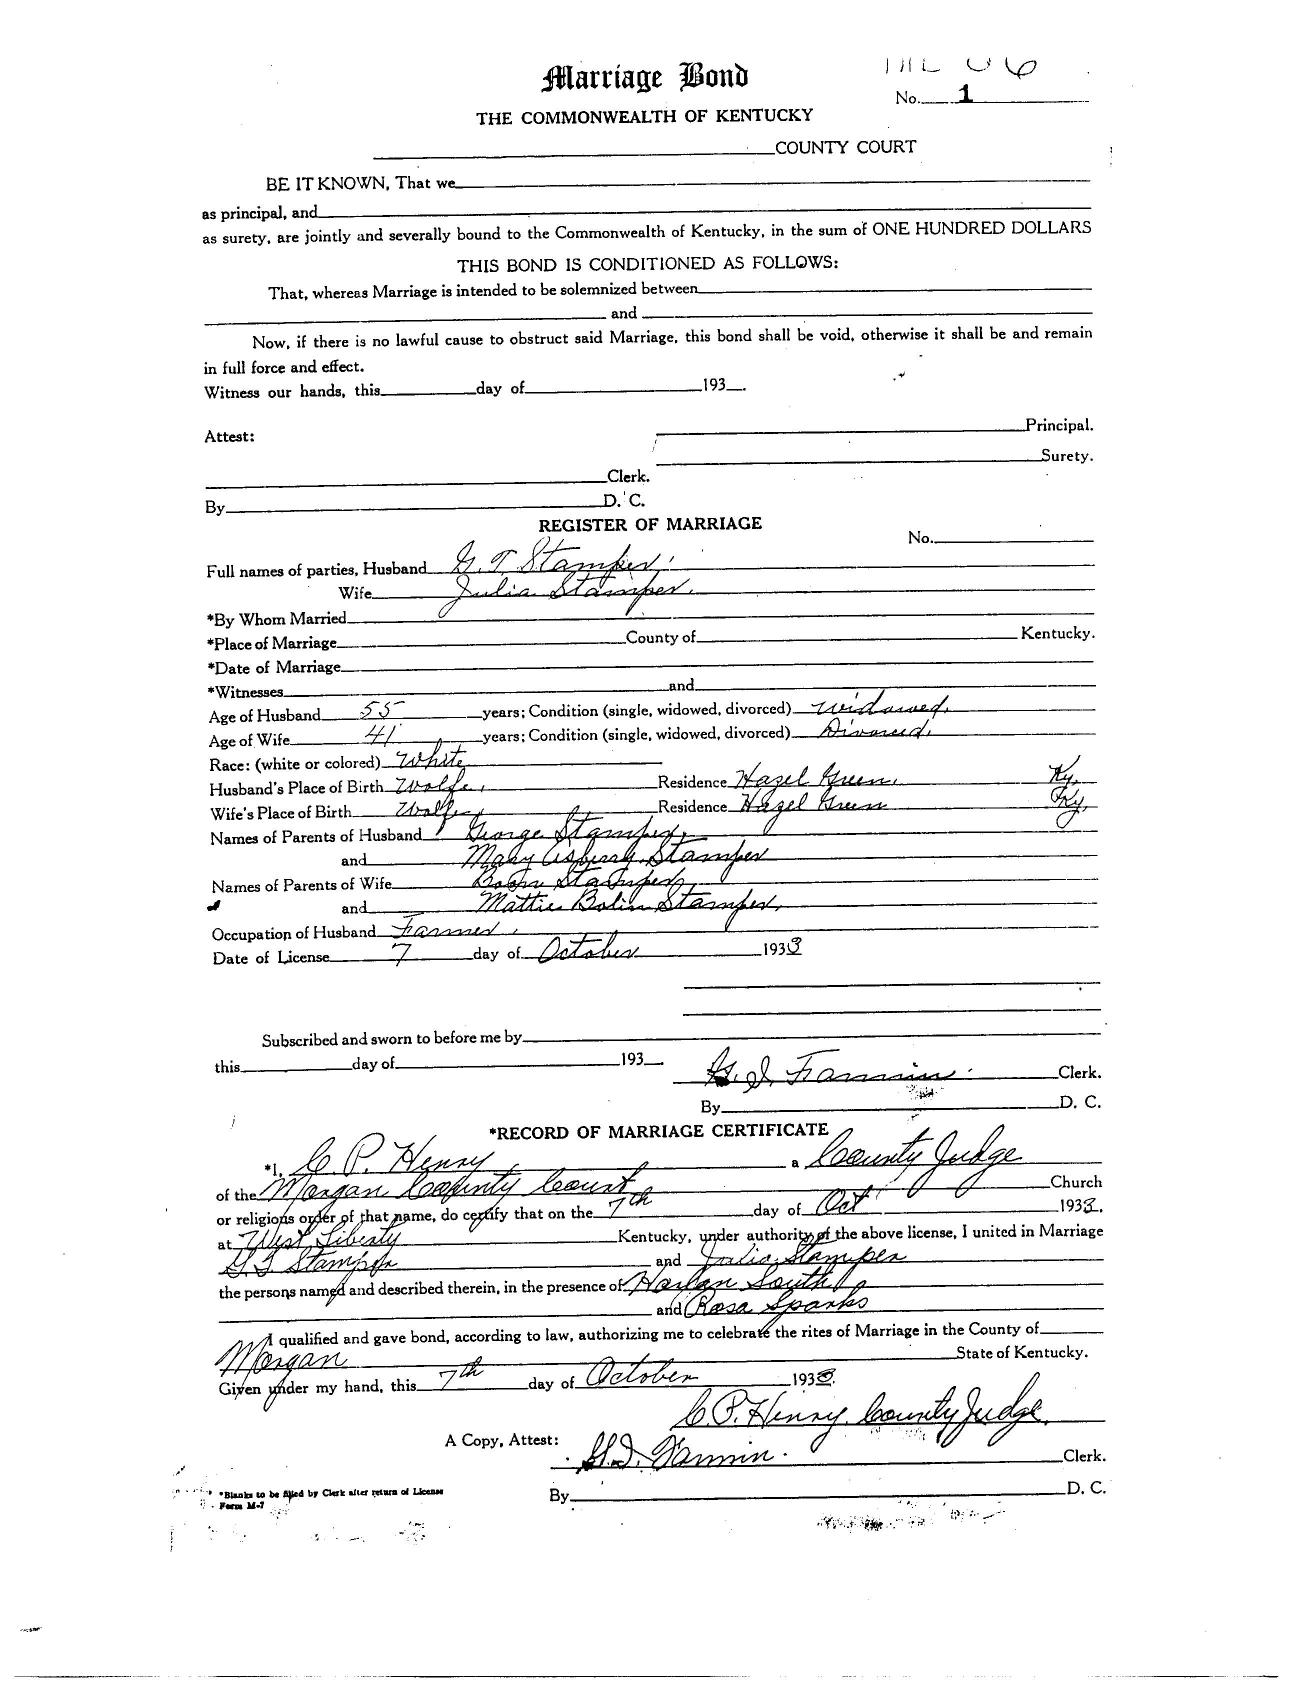 Marriage Bond
No. 1
THE COMMONWEALTH OF KENTUCKY
COUNTY COURT
BE IT KNOWN, That we
as principal, and
as surety, are jointly and severally bound to the Commonwealth of Kentucky, in the sum of ONE HUNDRED DOLLARS
THIS BOND IS CONDITIONED AS FOLLOWS:
That, whereas Marriage is intended to be solemnized between
and
Now, if there is no lawful cause to obstruct said Marriage, this bond shall be void, otherwise it shall be and remain
in full force and effect.
Witness our hands, this day of 193 .
Principal.
Attest:
Surety.
Clerk.
By D. C.
REGISTER OF MARRIAGE
No.
Full names of parties, Husband G. T Stamper.
Wife Julia Stamper.
*By Whom Married
*Place of Marriage County of Kentucky.
*Date of Marriage
*Witnesses and
Age of Husband 55 years; Condition (single, widowed, divorced) widowed.
Age of Wife 41 years; Condition (single, widowed, divorced) Divorced.
Race: (white or colored) White
Husband's Place of Birth Wolfe, Residence Hazel Green, Ky.
Wife's Place of Birth Wolfe, Residence Hazel Green Ky,
Names of Parents of Husband George Stamper,
and Mary Asberry Stamper
Names of Parents of Wife Boon Stamper,
and Mattie Bolin Stamper,
Occupation of Husband Farmer.
Date of License 7 day of October 1933
Subscribed and sworn to before me by
this day of 193
Fannin. Clerk.
By D. C.
*RECORD OF MARRIAGE CERTIFICATE
*I, C. P. Henry, a County Judge
of the Morgan County Court Church
or religious order of that name, do certify that on the 7th day of Oct 1933.
at West Liberty Kentucky, under authority of the above license, I united in Marriage
G. T Stamper and Julia Stamper
the persons named and described therein, in the presence of Harlan South
and Rosa Sparks
I qualified and gave bond, according to law, authorizing me to celebrate the rites of Marriage in the County of
Morgan State of Kentucky.
Given under my hand, this 7th day of October 1933.
C. P. Henry, County Judge.
A Copy, Attest: Fannin. Clerk.
*Blanks to be filled by Clerk after return of License
Form M-7
By D. C.